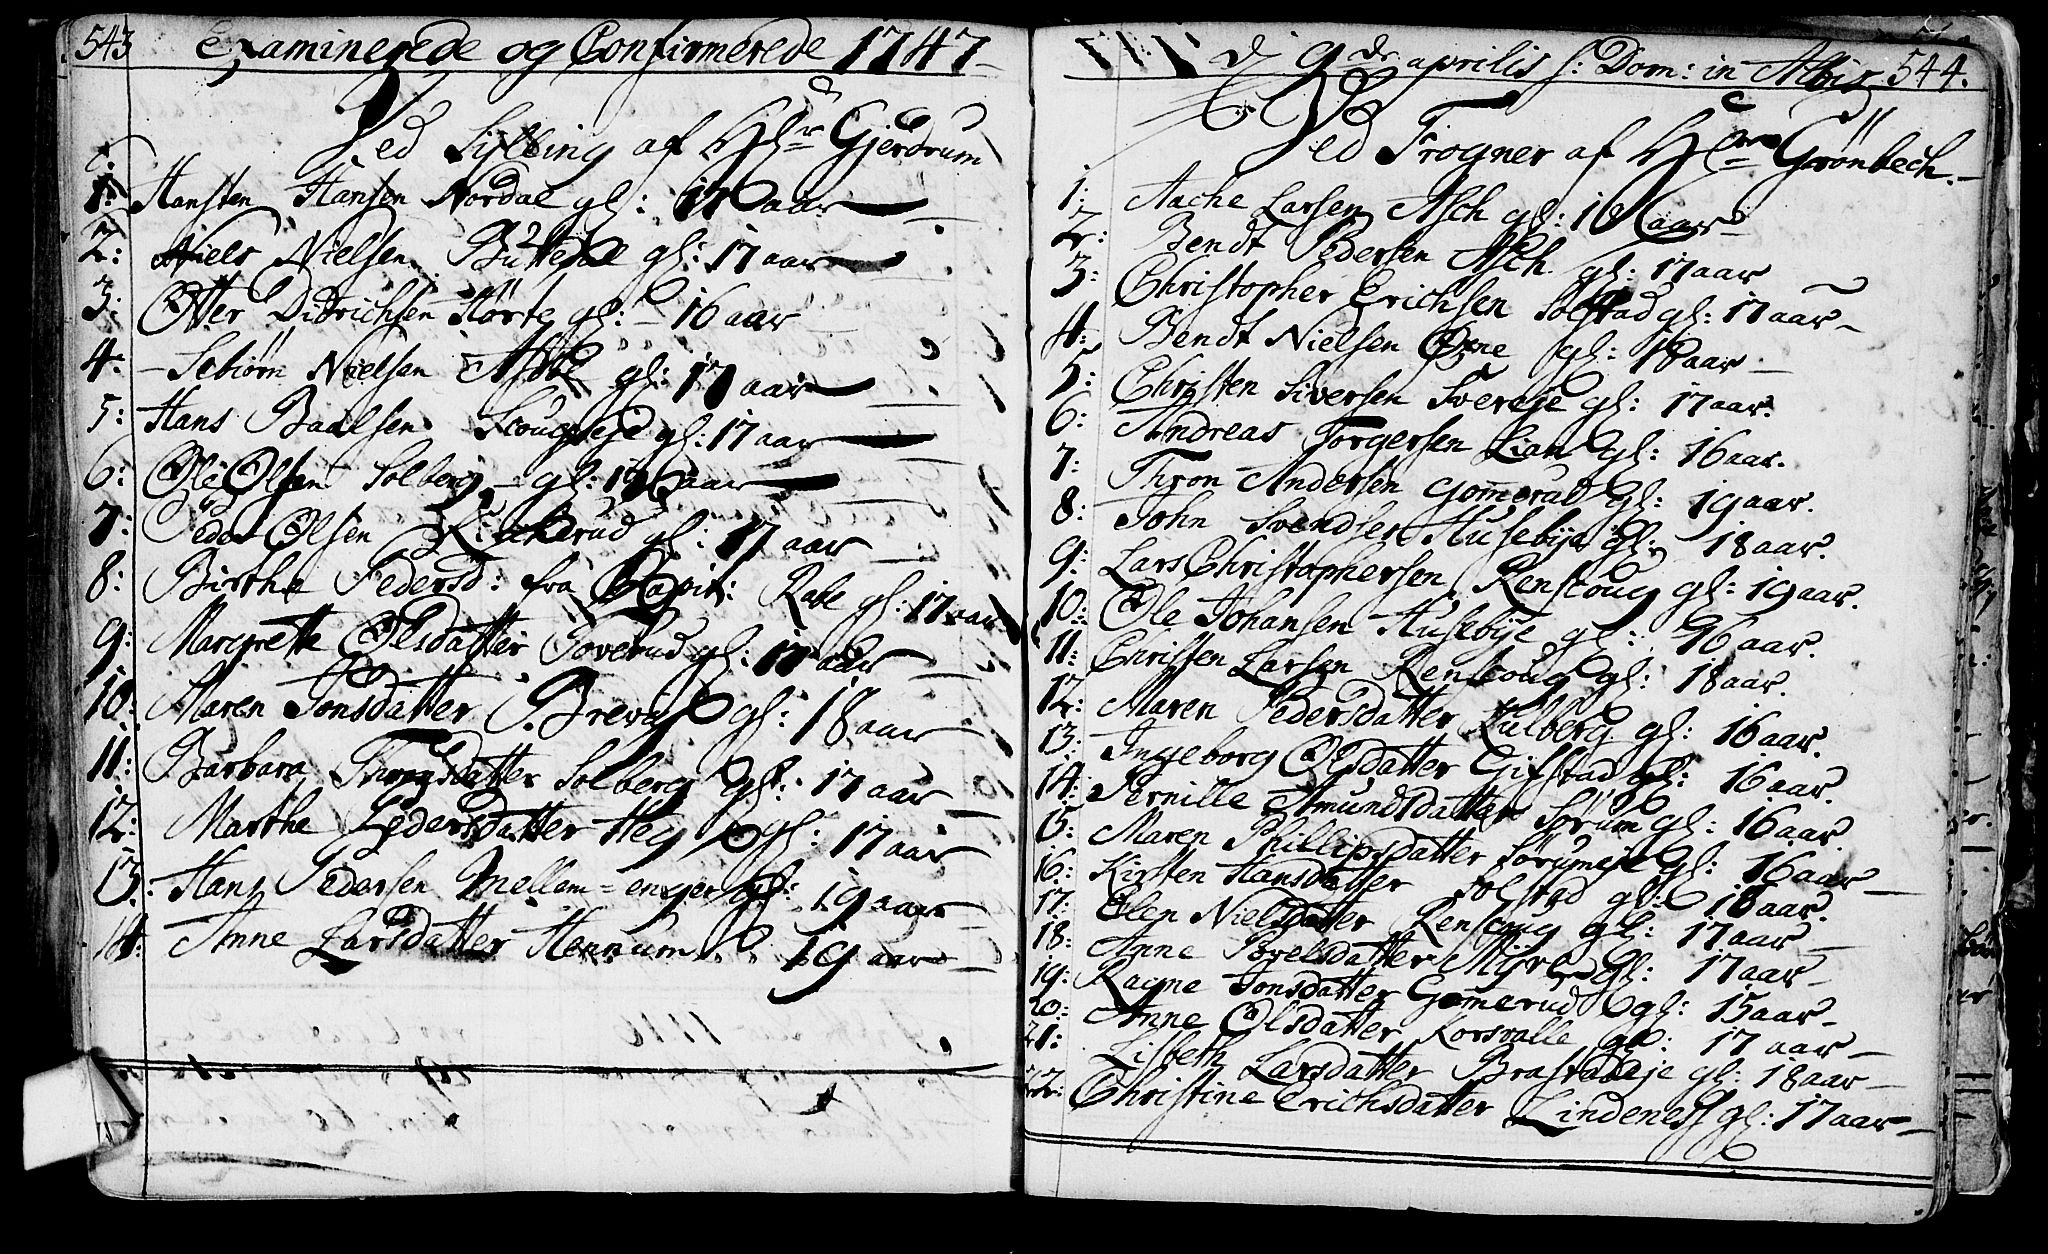 543 Examinerede og Confirmerede 1747
Ved Sylling af Hr Gjerdrum
1: Hansten Hansen Nordal gl: 17 aar
2: Niels Nielsen gl: 17 aar
3: Otter Didrichsen Hörte gl: 16 aar
4: Sebiörn Nielsen gl: 17 aar
5: Hans Baalsen Scougseje gl: 17 aar
6: Ole Olsen Solberg gl: 19 aar
7: Peder Olsen Kirkerud gl: 17 aar
8: Birthe Pedersd: fra Capit: Rabe gl: 17 aar
9: Margrette Olsdatter Toverud gl: 17 aar
10: Maren Jonsdatter gl: 18 aar
11: Barbara Thronsdatter Solberg gl: 17 aar
12: Marthe Pedersdatter Heg gl: 17 aar
13: Hans Pedersen Mellem=enger gl: 19 aar
14: Anne Larsdatter Hennum 19 aar
1747 d 9de aprilis s: Dom: in Albis 544.
Ved Frogner af Hr Grönbech.
1: Aache Larsen Asch gl: 16 aar
2: Bendt Pedersen Asch gl: 17 aar
3: Christopher Erichsen Solstad gl: 17 aar
4: Bendt Nielsen gl: 18 aar
5: Christen Siversen Sverseje gl: 17 aar.
6: Andreas Torgersen Lian gl: 16 aar.
7: Thron Andersen Gomerud gl: 19 aar.
8: John Svendsen Husebye gl: 18 aar.
9: Lars Christophersen Renscoug gl: 19 aar.
10: Ole Johansen Husebye gl: 16 aar.
11: Christen Larsen Renscoug gl: 18 aar.
12: Maren Pedersdatter Kulberg gl: 16 aar.
13: Ingeborg Olsdatter Gifstad gl: 16 aar.
14: Pernille Amundsdatter Sørum gl: 16 aar.
15: Maren Phillipsdatter Sørumeje gl: 16 aar
16: Kirsten Hansdatter Solstad gl: 18 aar.
17: Elen Nielsdatter Renscoug gl: 17 aar
18: Anne Povelsdatter gl: 17 aar
19: Ragne Jonsdatter Gomerud gl: 15 aar
20: Anne Olsdatter Korsvalle gl: 17 aar
21: Lisbeth Larsdatter Brastadeje gl: 18 aar
22: Christine Erichsdatter Lindeness gl: 17 aar